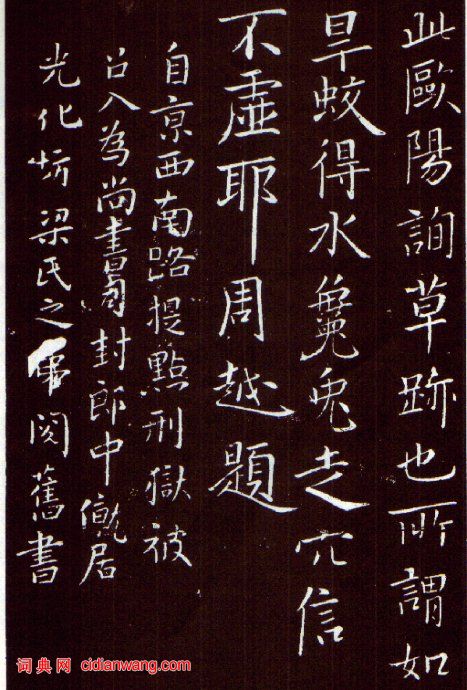 此歐陽詢草跡也所謂如
旱蛟得水毚兔走穴信
不虛耶周越題
自亰西南路提點刑獄被
召入為尚書司封郎中僦居
光化坊梁氏之第閱舊書
词典网 cidianwang.com